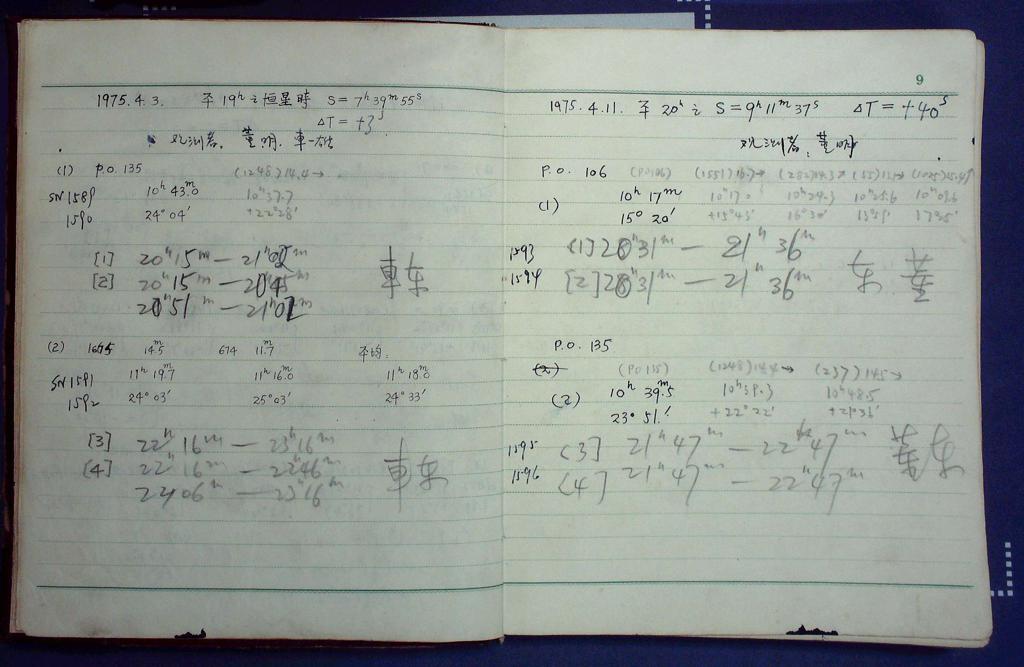 1975.4.3. 平 19ʰ 之恒星時 S=7ʰ39ᵐ55ˢ
ΔT=+3ˢ
观测者. 董明. 車一雄
(1) P.O. 135 (1248) 14.4→
SN1589 10ʰ 43ᵐ.0 10ʰ37.7
1590 24°04′ +22°28′
[1] 20ʰ15ᵐ—21ʰ02ᵐ
[2] 20ʰ15ᵐ—2045ᵐ 車车
20ʰ51ᵐ—21ʰ02ᵐ
(2) 1675 14ᵐ.5 674 11ᵐ.7 平均:
SN1591 11ʰ19ᵐ.7 11ʰ16ᵐ.0 11ʰ18ᵐ.0
1592 24°03′ 25°03′ 24°33′
[3] 22ʰ16ᵐ—23ʰ16ᵐ
[4] 22ʰ16ᵐ—2246ᵐ 車车
2206ᵐ—23ʰ16ᵐ
9
1975.4.11. 平 20ʰ 之 S=9ʰ11ᵐ37ˢ ΔT=+40ˢ
观测者: 董明
P.O. 106 (PO106) (1551) 16.7→ (282) 14.3→
(1) 10ʰ17ᵐ 10ʰ24.3 10ʰ25.6 10ʰ09.6
15°20′ +15°43′ 16°30′ 13°59′
1593 (1] 20ʰ31ᵐ—21ʰ36ᵐ
1594 [2] 20ʰ31ᵐ—21ʰ36ᵐ 车 董
P.O. 135
(2) (PO135) (1248) 14.4→ (237) 14.5→
(2) 10ʰ39ᵐ.5 10ʰ39.3 10ʰ48.5
23°51′ +22°22′ +21°36′
1595 (3] 21ʰ47ᵐ—22ʰ47ᵐ 董车
1596 (4] 21ʰ47ᵐ—22ʰ47ᵐ